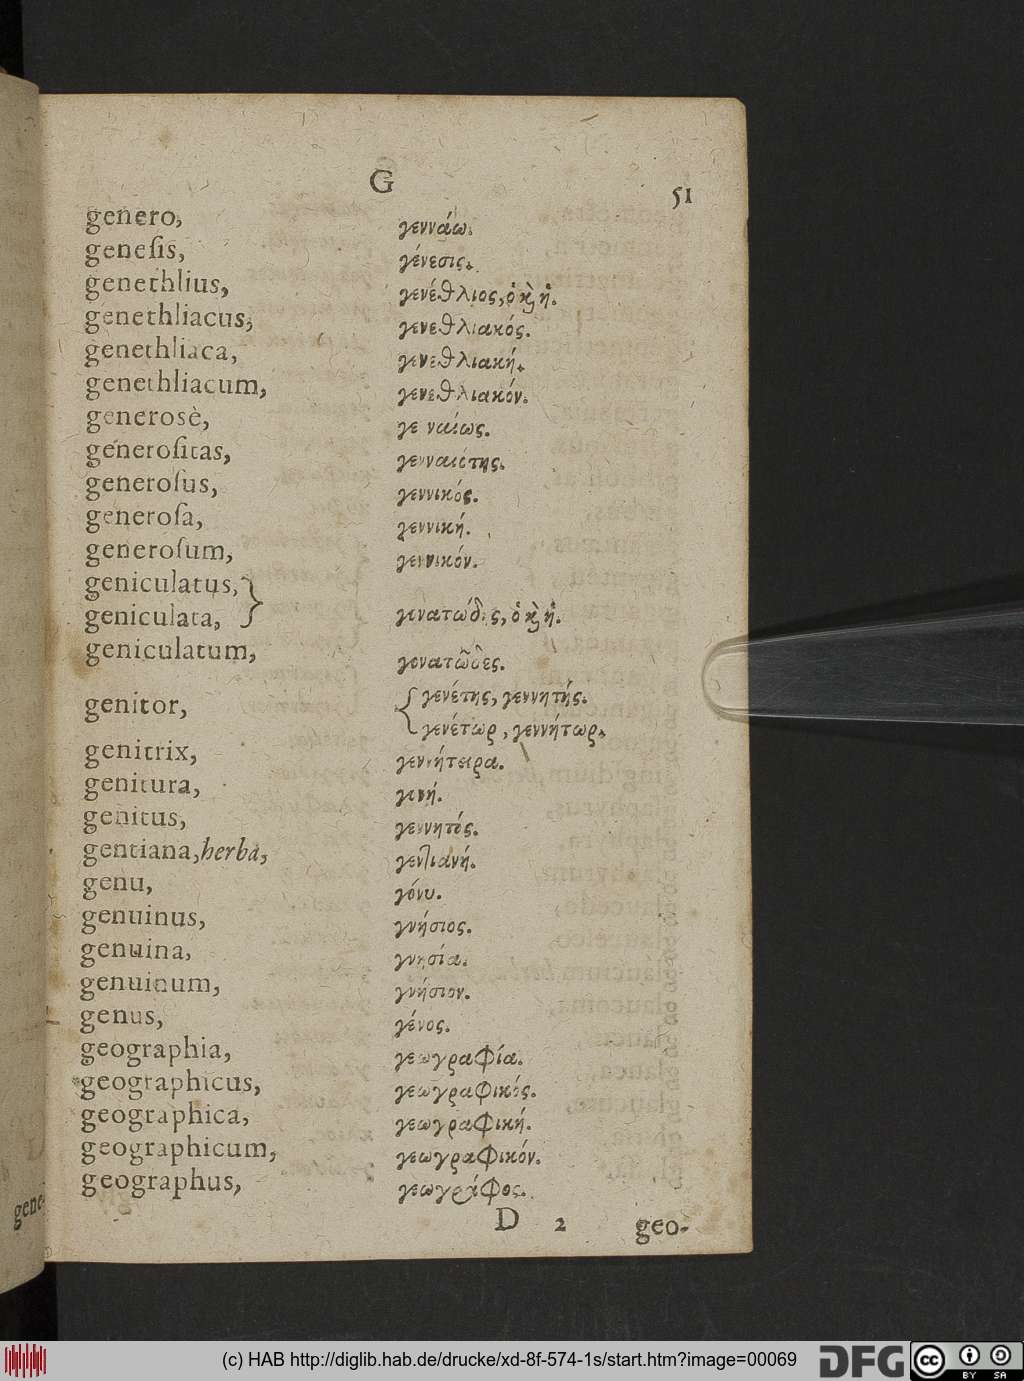 G
51
genero, γεννάω.
geneſis, γένεσις.
genethlius, γενέθλιος, ὁ κ̀ ἡ.
genethliacus, γενεθλιακός.
genethliaca, γενεθλιακή.
genethliacum, γενεθλιακόν.
generosè, γε ναίως.
generoſitas, γενναιότης.
generoſus, γεννικός.
generoſa, γεννική.
generoſum, γεννικόν.
geniculatus,
geniculata, γονατώδης, ὁ κ̀ ἡ.
geniculatum, γονατῶδες.
genitor, γενέτης, γεννητής.
γενέτωρ, γεννήτωρ.
genitrix, γεννήτειρα.
genitura, γονή.
genitus, γεννητός.
gentiana, herba, γεντιανή.
genu, γόνυ.
genuinus, γνήσιος.
genuina, γνησία.
genuinum, γνήσιον.
genus, γένος.
geographia, γεωγραφία.
geographicus, γεωγραφικός.
geographica, γεωγραφική.
geographicum, γεωγραφικόν.
geographus, γεωγράφος.
D 2 geo-
gene-
(c) HAB http://diglib.hab.de/drucke/xd-8f-574-1s/start.htm?image=00069
DFG
cc BY SA